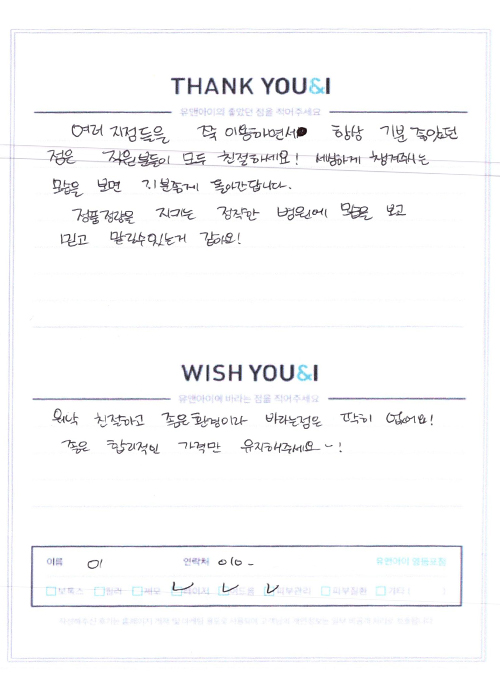 THANK YOU&I
유앤아이의 좋았던 점을 적어주세요
여러 지점들을 쭉 이용하면서 항상 기분 좋았던
점은 직원분들이 모두 친절하세요! 세심하게 챙겨주시는
모습을 보면 기분좋게 돌아간답니다.
정품정량을 지키는 정직한 병원에 모습을 보고
믿고 맡길수있는거 같아요!
WISH YOU&I
유앤아이에 바라는 점을 적어주세요
워낙 친절하고 좋은환경이라 바라는점은 딱히 없어요!
좋은 합리적인 가격만 유지해주세요~!
이름 이 연락처 010- 유앤아이 영등포점
보톡스 필러 레이저 여드름 피부관리 피부질환 기타 ( )